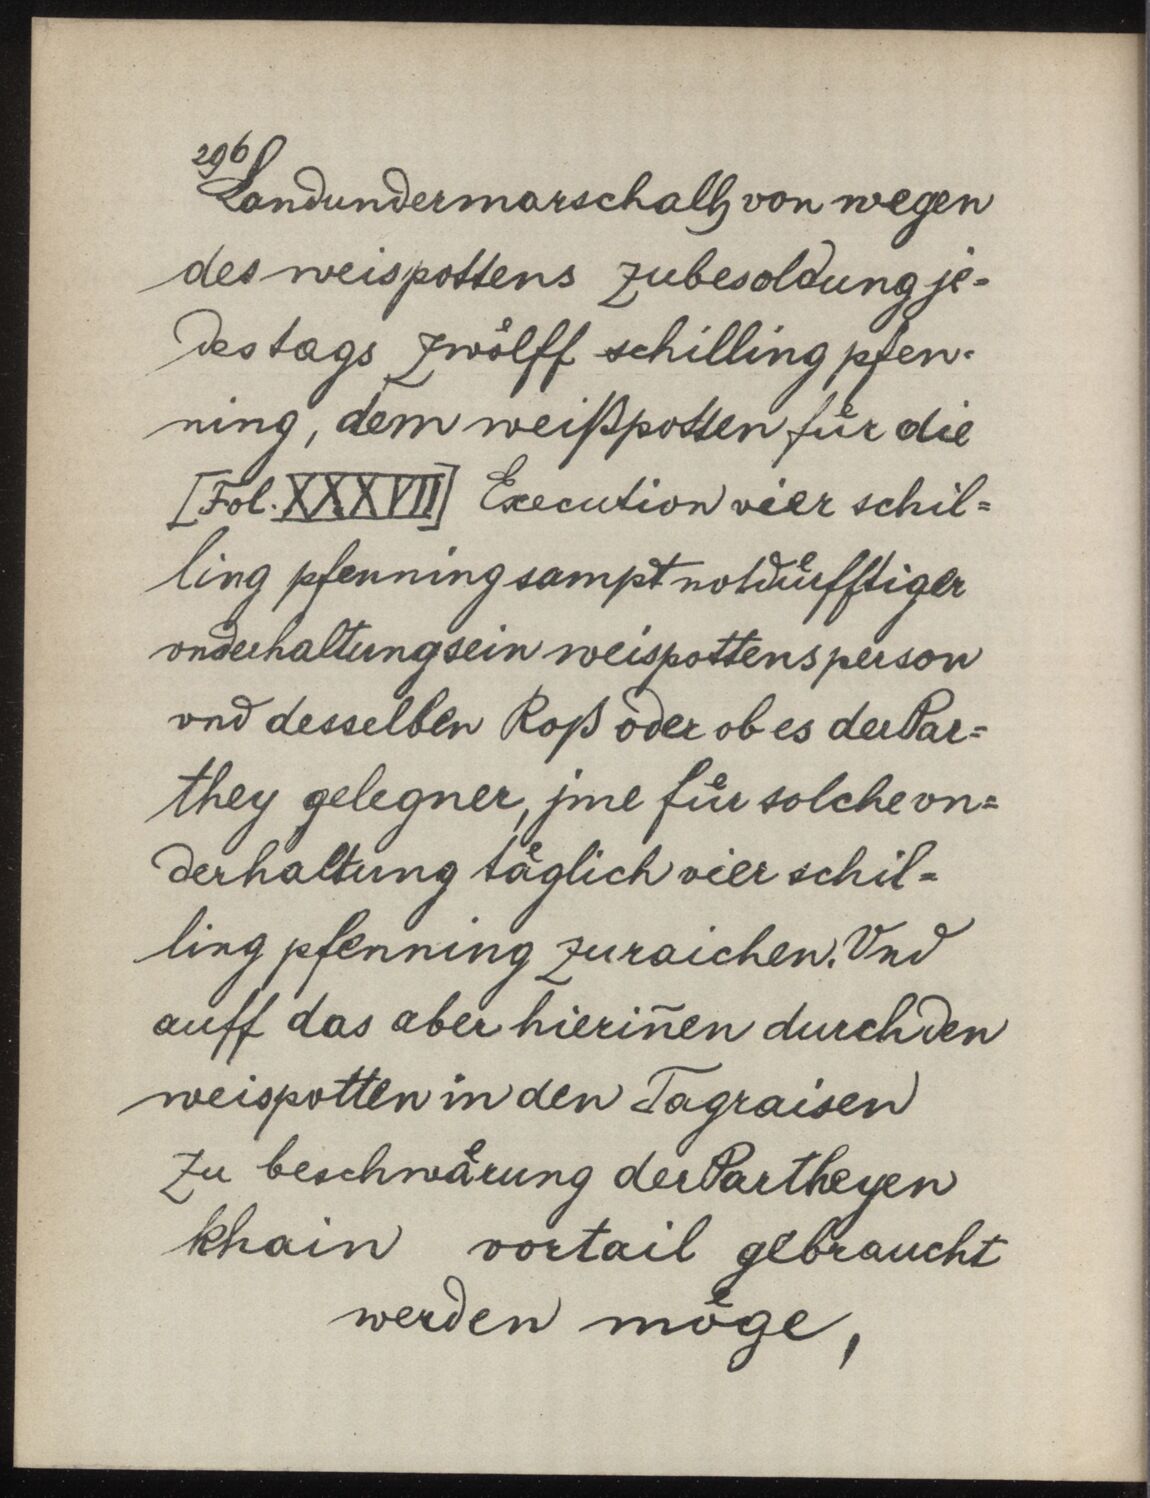 296
Landundermarschalh von wegen
des weispottens zubesoldung je-
des tags zwoͤlff schilling pfen-
ning, dem weißpotten fuͤr die
[Fol. XXXVII] Execution vier schil=
ling pfenning sampt notduͤrfftiger
vnderhaltung sein weispottens person
vnd desselben Roß oder ob es der Par=
they gelegner, jme fuͤr solche vn=
derhaltung taͤglich vier schil=
ling pfenning zuraichen. Vnd
auff das aber hierin̄en durch den
weispotten in den Tagraisen
zu beschwaͤrung der Partheyen
khain vortail gebraucht
werden moͤge,